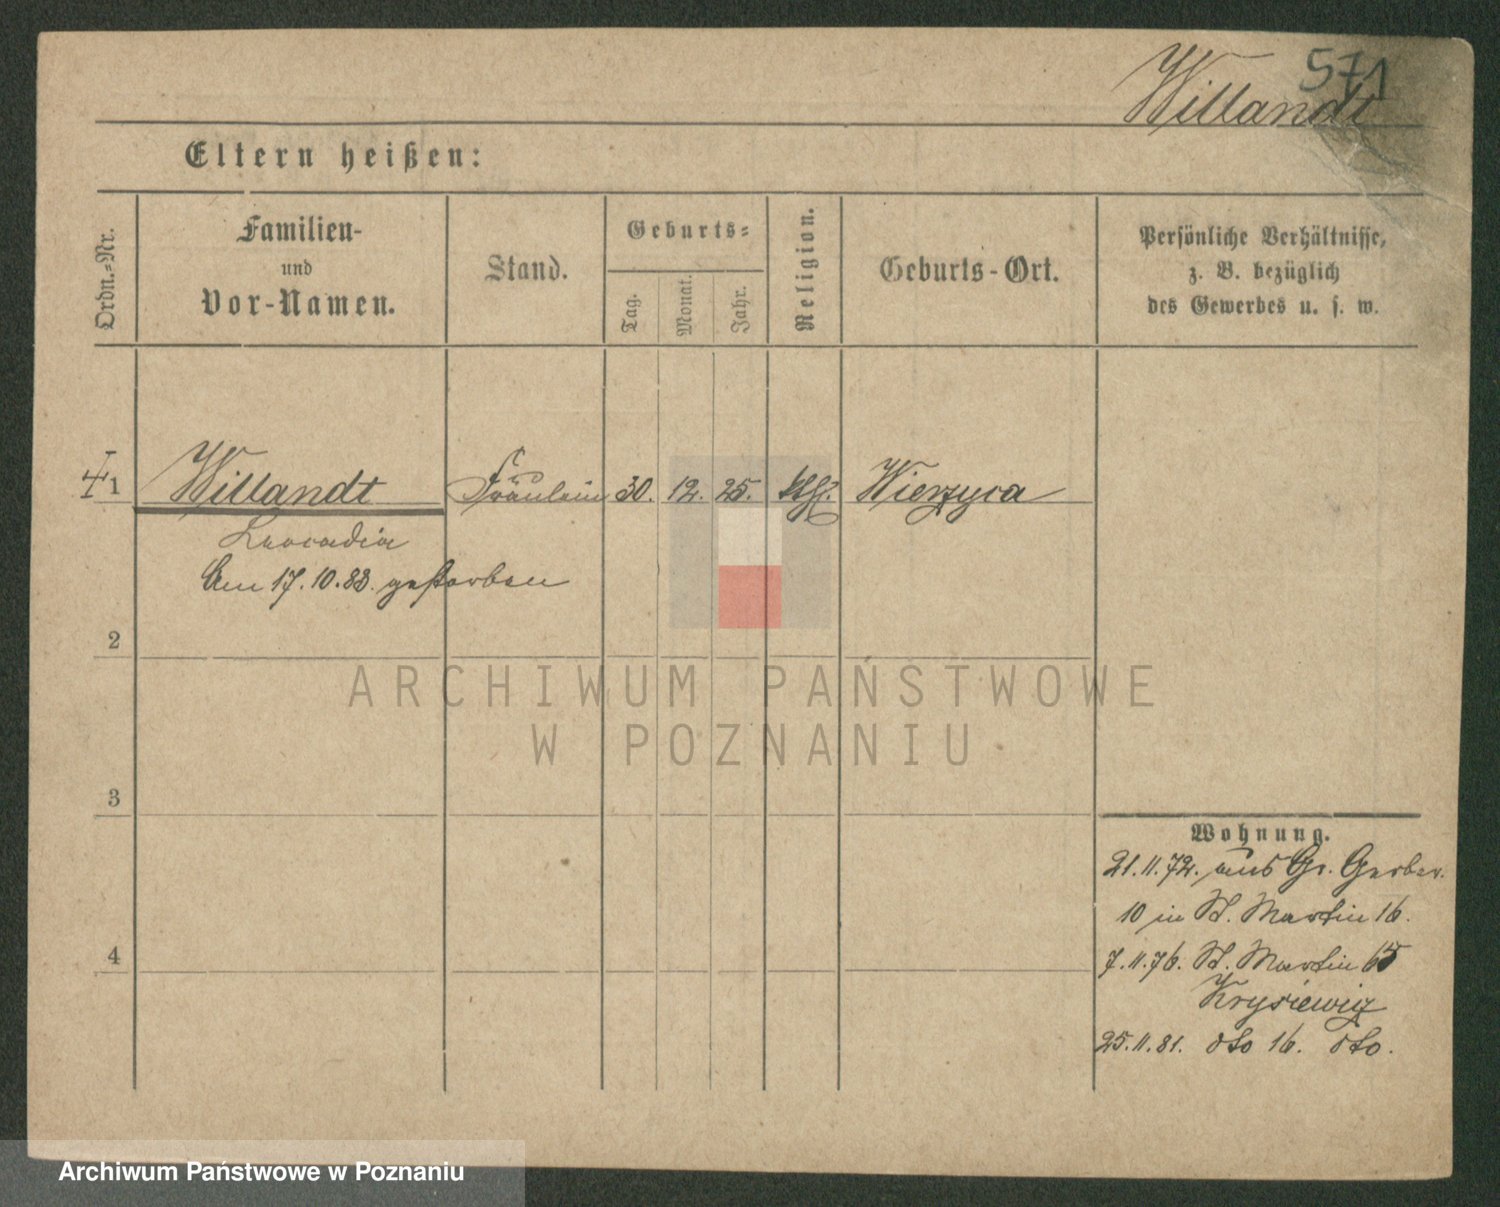 571
Willandt
Eltern heißen:
Ordn.=Nr.
Familien-
und
Vor-Namen.
Stand.
Geburts=
Tag.
Monat.
Jahr.
Religion.
Geburts-Ort.
Persönliche Verhältnisse,
z. B. bezüglich
des Gewerbes u. s. w.
1 Willandt Fräulein 30. 12. 25. Kth. Wierzyca
Leocadia
Am 17.10.83. gestorben
2
ARCHIWUM PAŃSTWOWE
W POZNANIU
3
Wohnung.
21.11.72. aus Gr. Gerber.
10 in St. Martin 16.
4
7.11.76. St. Martin 65
Krysiewicz
25.11.81. dto 16. dto.
Archiwum Państwowe w Poznaniu